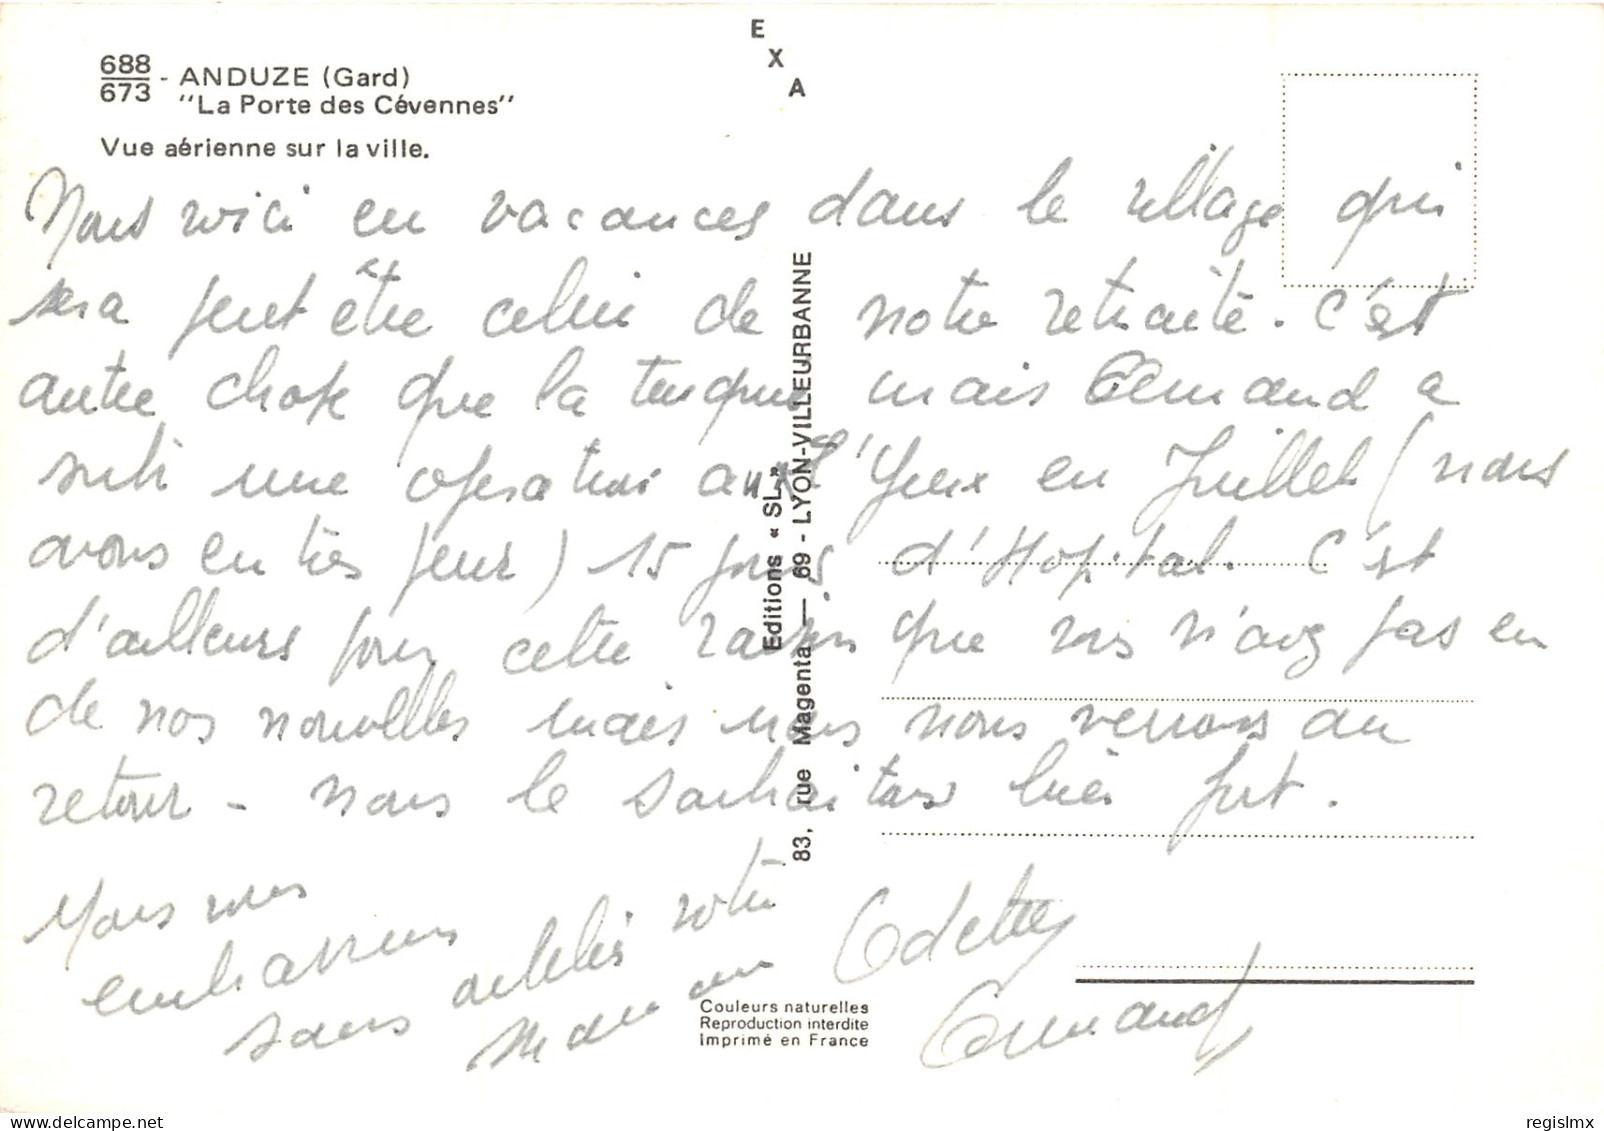 E
X
A
688
673 - ANDUZE (Gard)
"La Porte des Cévennes"
Vue aérienne sur la ville.
Nous voici en vacances dans le village qui
sera peut être celui de notre retraite. C'est
autre chose que la mais Armand a
subi une operation aux Yeux en Juillet (nous
avons eu très peur) 15 jours d'Hopital. C'est
d'ailleurs pour cette raison que vous n'avez pas eu
de nos nouvelles mais nous nous verrons au
retour - nous le souhaitons très fort.
Nous vous
embrassons
sans oublier votre
Maman
Odette
Armand
Editions « SL »
83, rue Magenta — 69 - LYON-VILLEURBANNE
Couleurs naturelles
Reproduction interdite
Imprimé en France
delcampe.net
regislmx